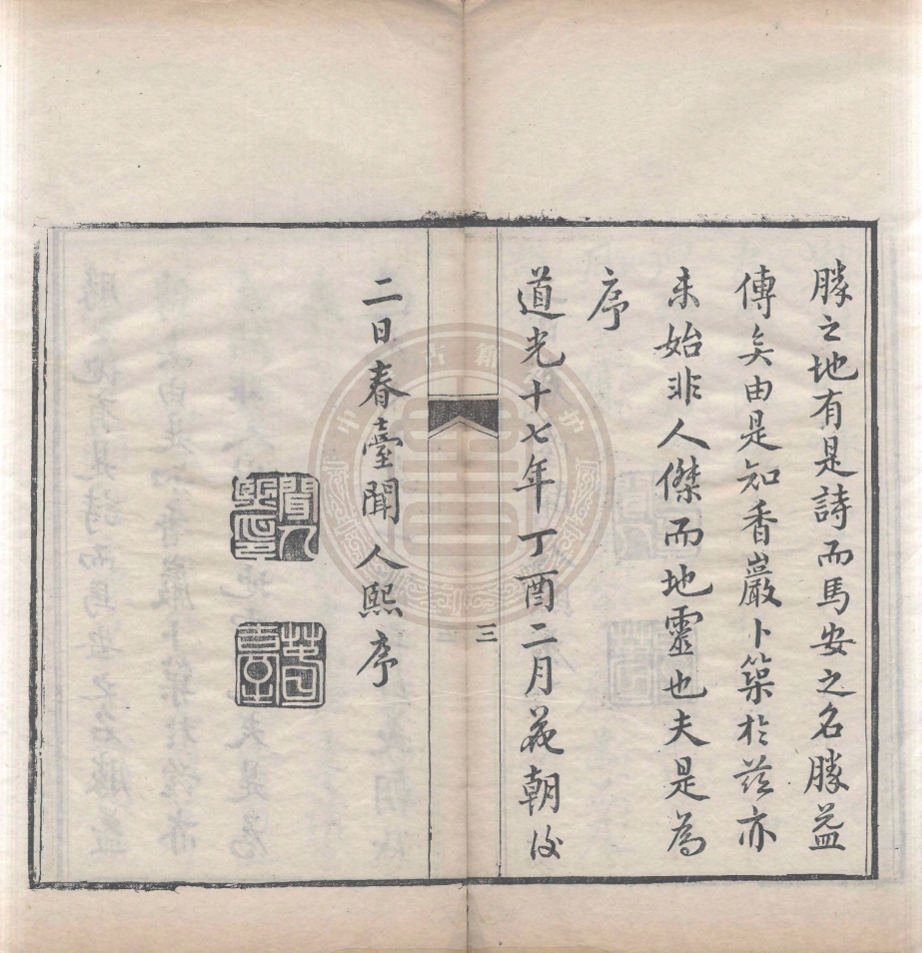 勝之地有是詩而馬安之名勝益
傳矣由是知香巖卜築於茲亦
未始非人傑而地靈也夫是為
序
道光十七年丁酉二月花朝後
三
二日春臺聞人熙序
聞人熙印
春臺